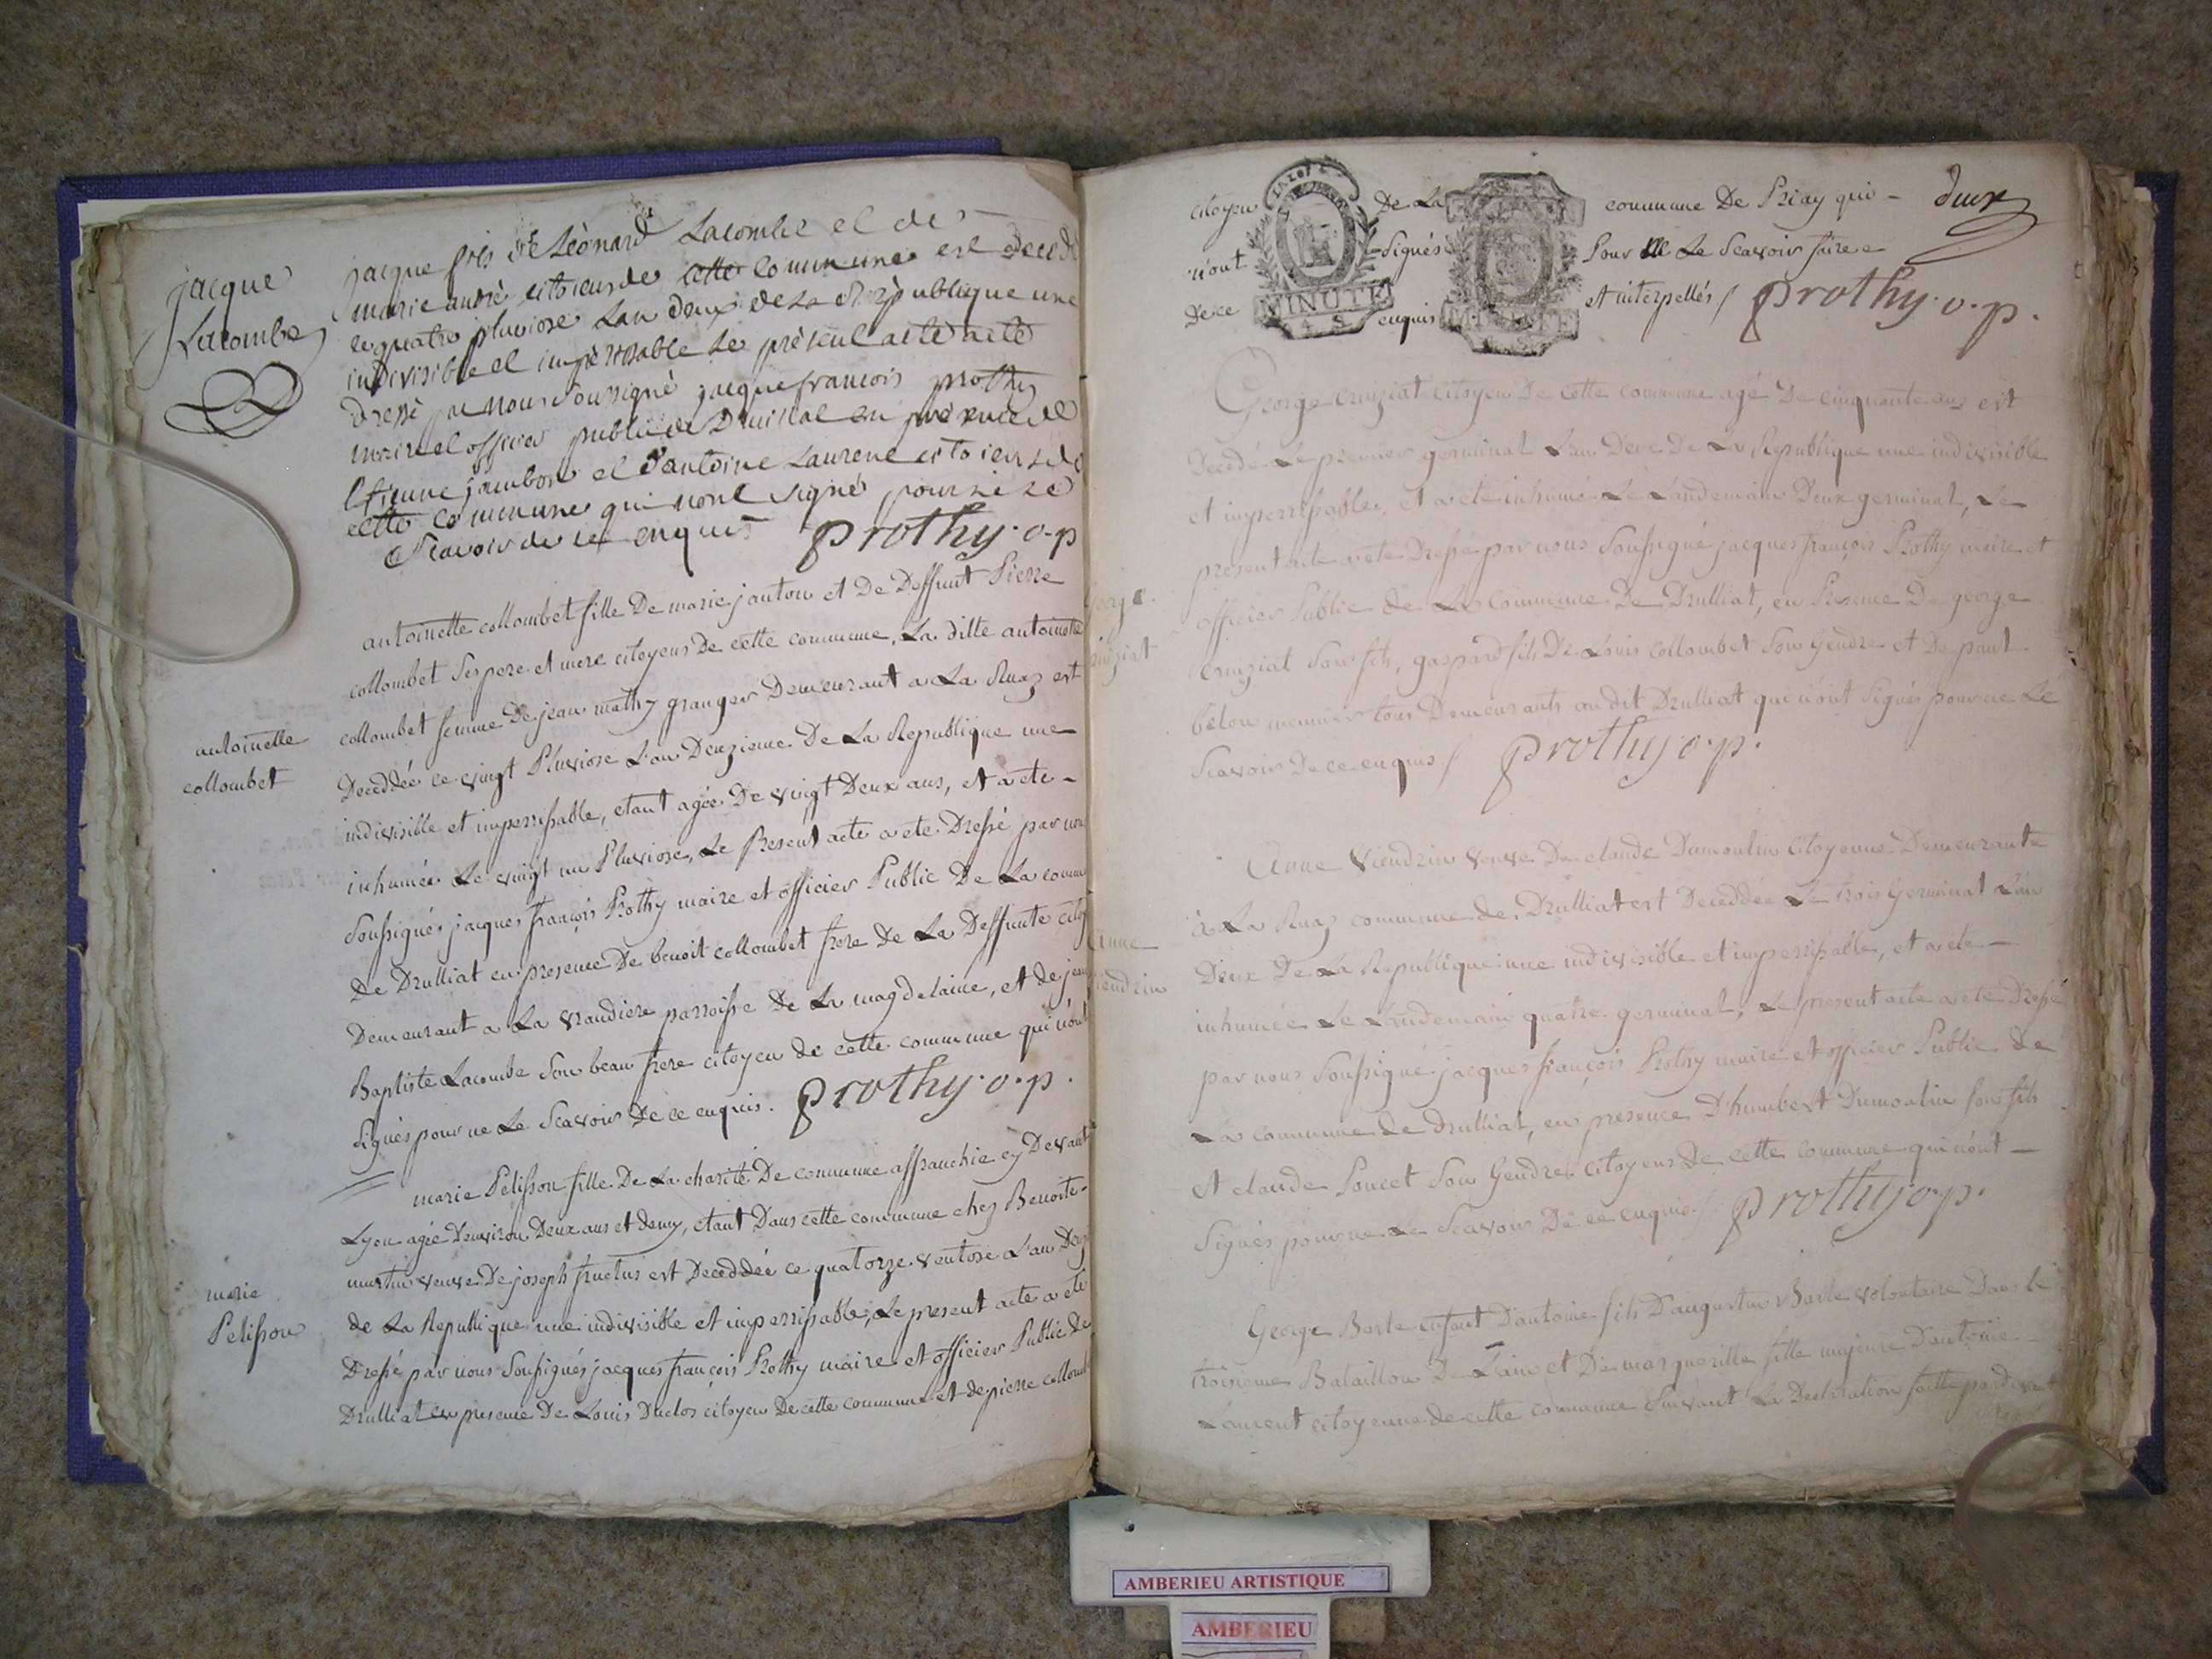 jacque
Lacombe
jacque fils de Lèonard Lacombe et de
marie andrè citoiens de cette commune est decedè
le quatre pluviose Lan deux de La Republique une
indivisible et impèrissable Le prèsent acte a etè
dressè par nous soussignè jacque francois prothy
maire et officier public de Druillat en prèsence de
Etienne jambon et d'antoine Laurent citoiens de
cette commune qui nont signès pour ne le
scavoir de ce enquis prothy.o.p
antoinette
collombet
antoinette collombet fille De marie janton et De Deffunt Pierre
collombet Ses pere et mere citoyens De cette commune, La ditte antoinette
collombet femme De jean mathy granger Demeurant a La Ruaz est
Deceddée ce vingt Pluviose L'an Deuzieme De La Republique une
indivisible et imperrissable, etant agée De vingt Deux ans, et a ete
inhumée Le vingt un Pluviose, Le Present acte a ete Dressé par nous
Soussignés jacques françois Prothy maire et officier Public De La commune
De Drulliat en presence De benoit collombet frere De La Deffunte
Demeurant a La vrandiere parroisse De La magdelaine, et de jean
Baptiste Lacombe Son beau frere citoyen de cette commune qui n'ont
Signés pour ne Le Scavoir De ce enquis. prothy.o.p.
marie
Pelisson
marie Pelisson fille De La charité De commune affranchie cy Devant
Lyon agée D'environ Deux ans et demy, etant Dans cette commune chez Benoite
martin veuve De joseph fructus est Deceddée ce quatorze ventose L'an
de La Republique une indivisible et imperrissable, Le present acte a ete
Dressé par nous Soussignés jacques françois Prothy maire et officier Public de
Drulliat en presence De Louis Duclos citoyen De cette commune et de pierre
citoyens De La commune De Priay qui – deux
n'ont Signés Pour ne Le Scavoir faire
De ce enquis et interpellés / prothy.o.p.
MINUTE
George
cruziat
George cruziat citoyen De cette commune agé De cinquante ans est
Decedé Le premier germinal L'an Deux De La Republique une indivisible
et imperrissable, et a ete inhumé Le Landemain Deux germinal, Le
present acte a ete Dressé par nous Soussigné jacques françois Prothy maire et
officier Public de La Commune De Drulliat, en Presence De george
cruziat Son fils, gaspard fils De Louis collombet Son Gendre et De paul
belou tous Demeurants au dit Drulliat qui n'ont Signés pour ne Le
Scavoir De ce enquis / prothy.o.p.
Anne
Viendrin
Anne Viendrin veuve De claude Dumoulin Citoyenne Demeurante
à La Ruaz commune de Drulliat est Deceddée Le trois Germinal L'an
Deux De La Republique une indivisible et imperrissable, et a ete
inhumée Le Landemain quatre germinal, Le present acte a ete Dressé
par nous Soussigné jacques françois Prothy maire et officier Public de
La commune de drulliat, en presence D'humbert Dumoulin Son fils
et claude Poncet Son Gendre citoyens De cette commune qui n'ont
Signés pour ne Le Scavoir De ce enquis / prothy.o.p.
George Barle enfant D'antoine fils D'augustin Barle volontaire Dans le
troisieme Bataillon De L'ain et De margueritte fille majeure D'antoine
Laurent citoyenne de cette commune Suivant La Declaration faitte
AMBERIEU ARTISTIQUE
AMBERIEU